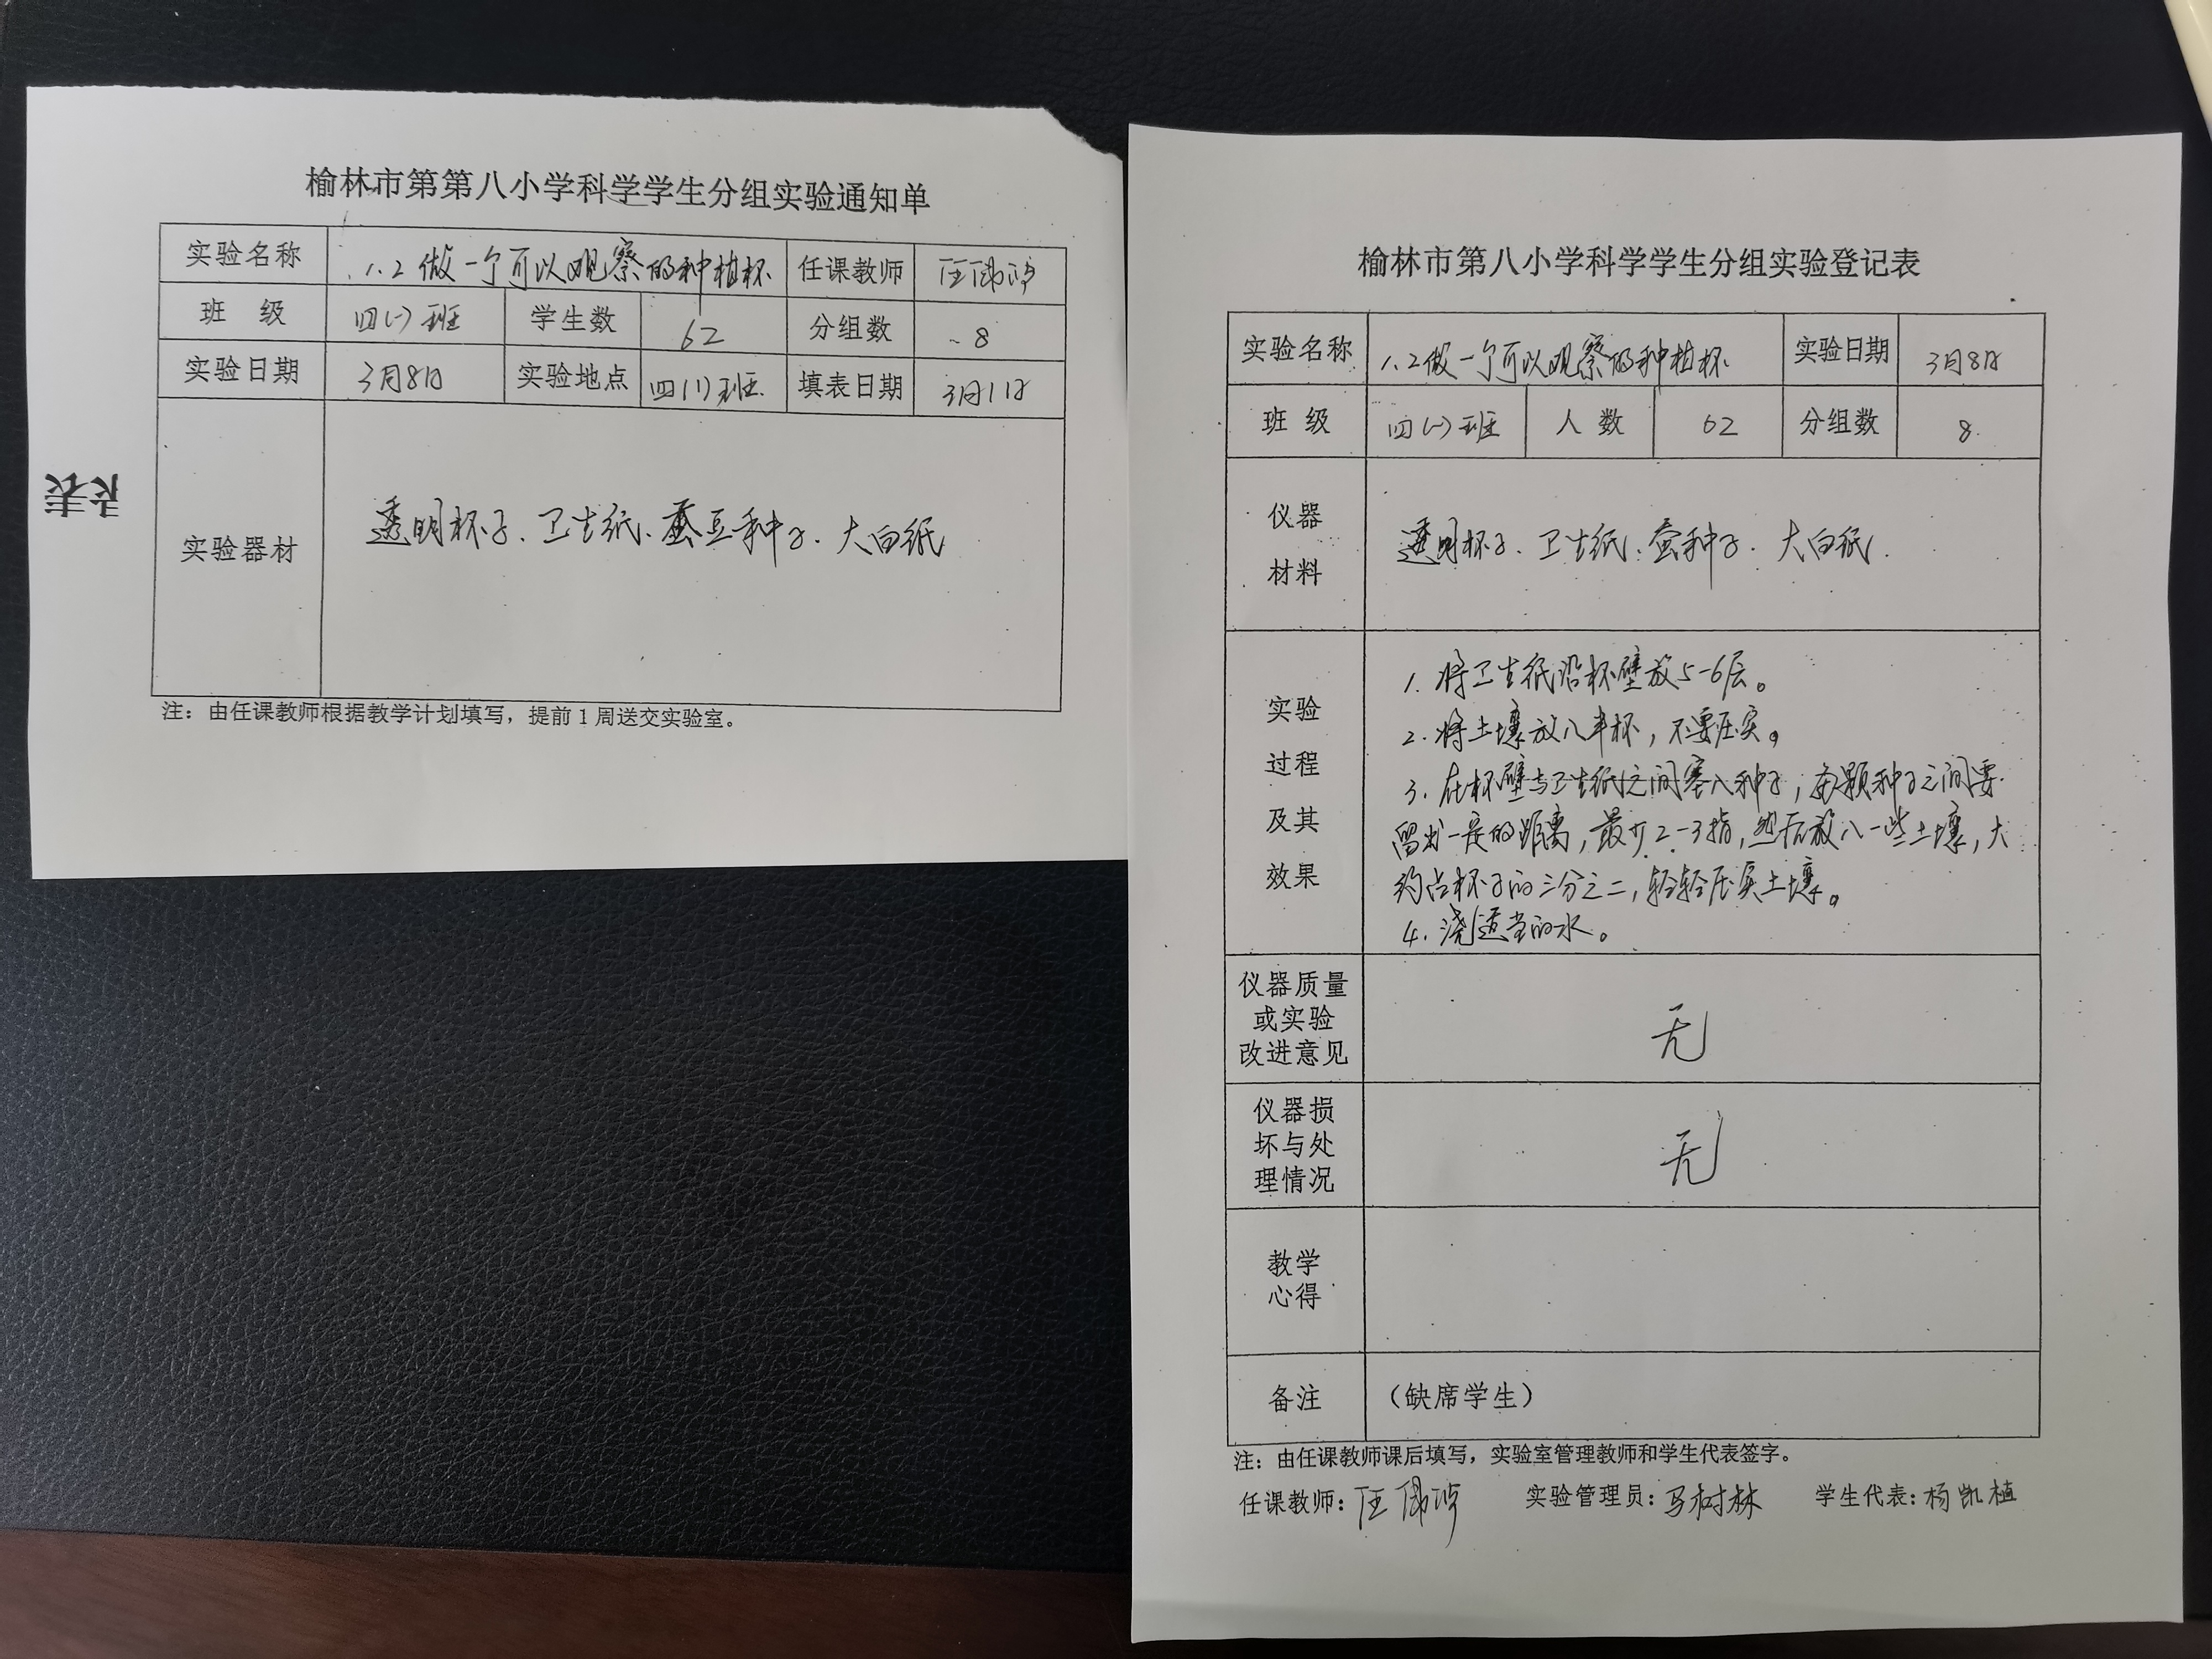 榆林市第第八小学科学学生分组实验通知单
实验名称 1.2做一个可以观察的种植杯 任课教师
班 级 四(一)班 学生数 62 分组数 8
实验日期 3月8日 实验地点 四(1)班 填表日期 3月1日
实验器材 透明杯子、卫生纸、蚕豆种子、大白纸
注：由任课教师根据教学计划填写，提前1周送交实验室。
榆林市第八小学科学学生分组实验登记表
实验名称 1.2做一个可以观察的种植杯 实验日期 3月8日
班 级 四(一)班 人 数 62 分组数 8
仪器
材料
透明杯子、卫生纸、蚕种子、大白纸.
实验
过程
及其
效果
1. 将卫生纸沿杯壁放5-6层。
2. 将土壤放入半杯，不要压实。
3. 在杯壁与卫生纸之间塞入种子，每颗种子之间要
留出一定的距离，最少2-3指，然后放入一些土壤，大
约占杯子的三分之二，轻轻压实土壤。
4. 浇适当的水。
仪器质量
或实验
改进意见
无
仪器损
坏与处
理情况
无
教学
心得
备注 （缺席学生）
注：由任课教师课后填写，实验室管理教师和学生代表签字。
任课教师： 实验管理员：马树林 学生代表：杨凯植